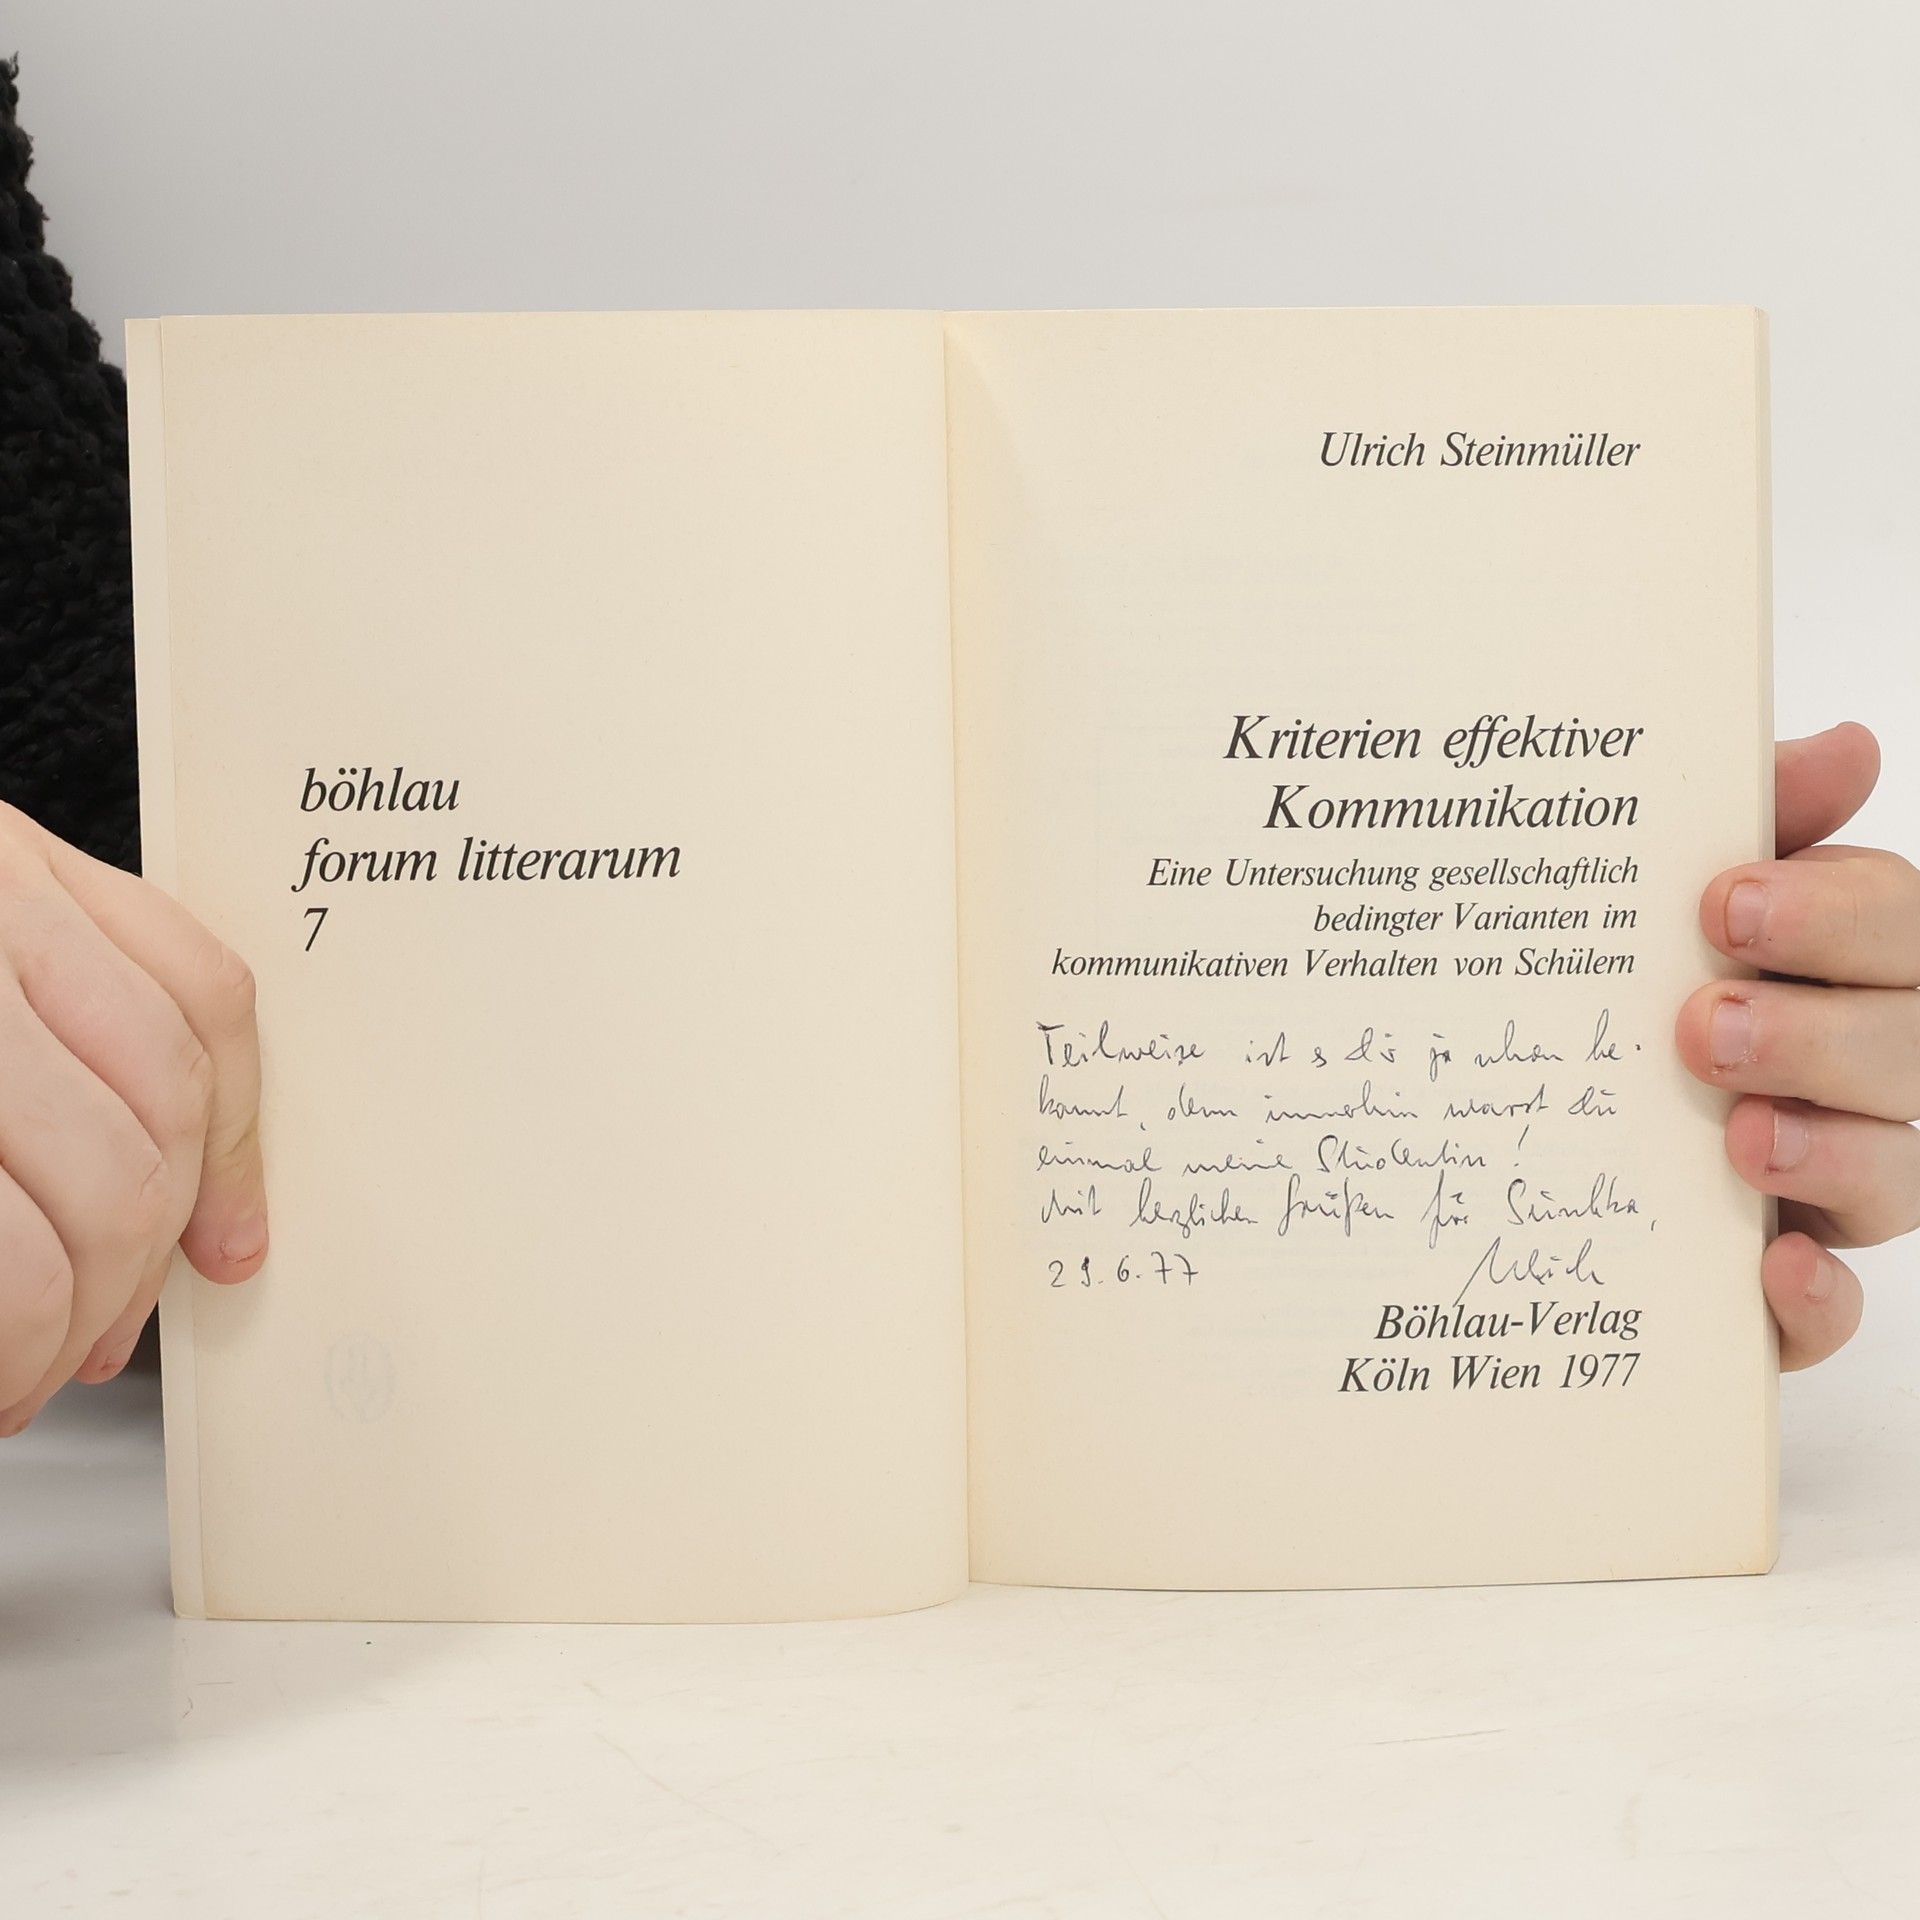 böhlau
forum litterarum
7
Ulrich Steinmüller
Kriterien effektiver
Kommunikation
Eine Untersuchung gesellschaftlich
bedingter Varianten im
kommunikativen Verhalten von Schülern
Teilweise ist es dir ja schon be-
kannt, denn immerhin warst du
einmal meine Studentin!
Mit herzlichen Grüßen für
29.6.77 Ulrich
Böhlau-Verlag
Köln Wien 1977